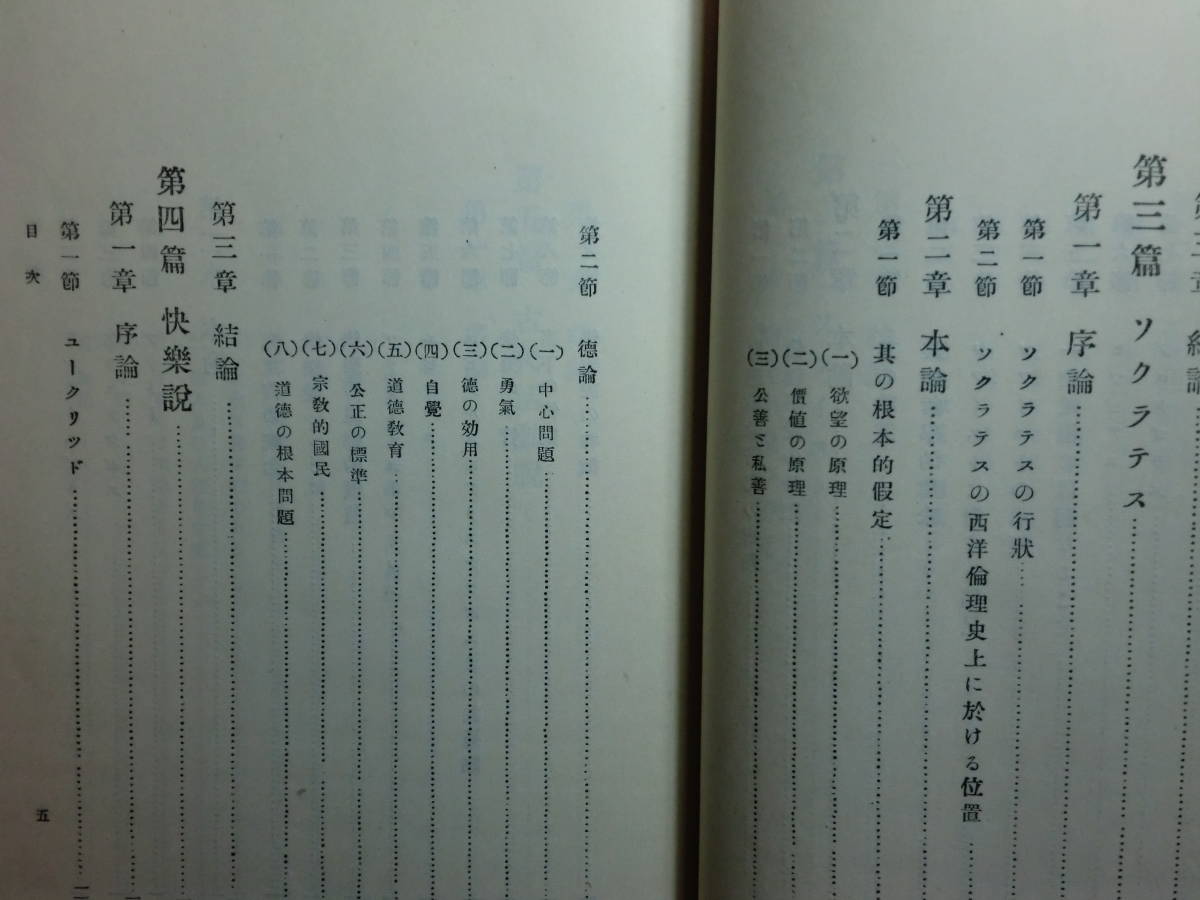 第三篇 ソクラテス
第一章 序論
第一節 ソクラテスの行狀
第二節 ソクラテスの西洋倫理史上に於ける位置
第二章 本論
第一節 其の根本的假定
(一) 欲望の原理
(二) 價値の原理
(三) 公善と私善
第二節 德論
(一) 中心問題
(二) 勇氣
(三) 德の効用
(四) 自覺
(五) 道德敎育
(六) 公正の標準
(七) 宗敎的國民
(八) 道德の根本問題
第三章 結論
第四篇 快樂說
第一章 序論
第一節 ユークリッド
目次
五